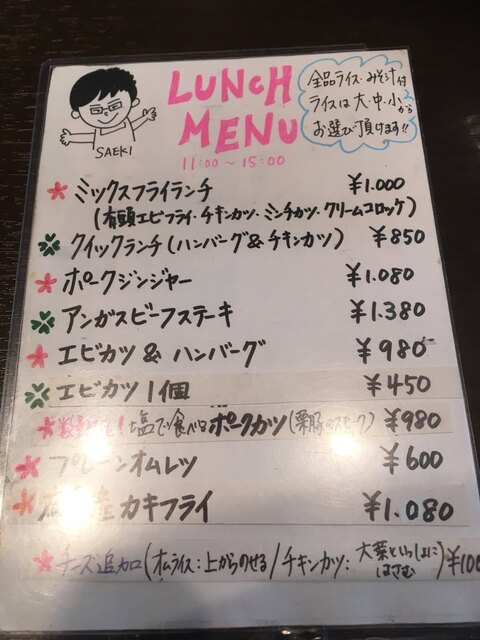 SAEKI
LUNCH
MENU
11:00~15:00
全品ライス・みそ汁付
ライスは大・中・小から
お選び頂けます!!
ミックスフライランチ ¥1.000
(有頭エビフライ・チキンカツ・ミンチカツ・クリームコロッケ)
クイックランチ(ハンバーグ&チキンカツ) ¥850
ポークジンジャー ¥1.080
アンガスビーフステーキ ¥1.380
エビカツ & ハンバーグ ¥980
エビカツ 1個 ¥450
塩で食べる ポークカツ ¥980
プレーンオムレツ ¥600
産 カキフライ ¥1.080
チーズ追加(オムライス:上からのせる/チキンカツ:大葉といっしょにはさむ) ¥100